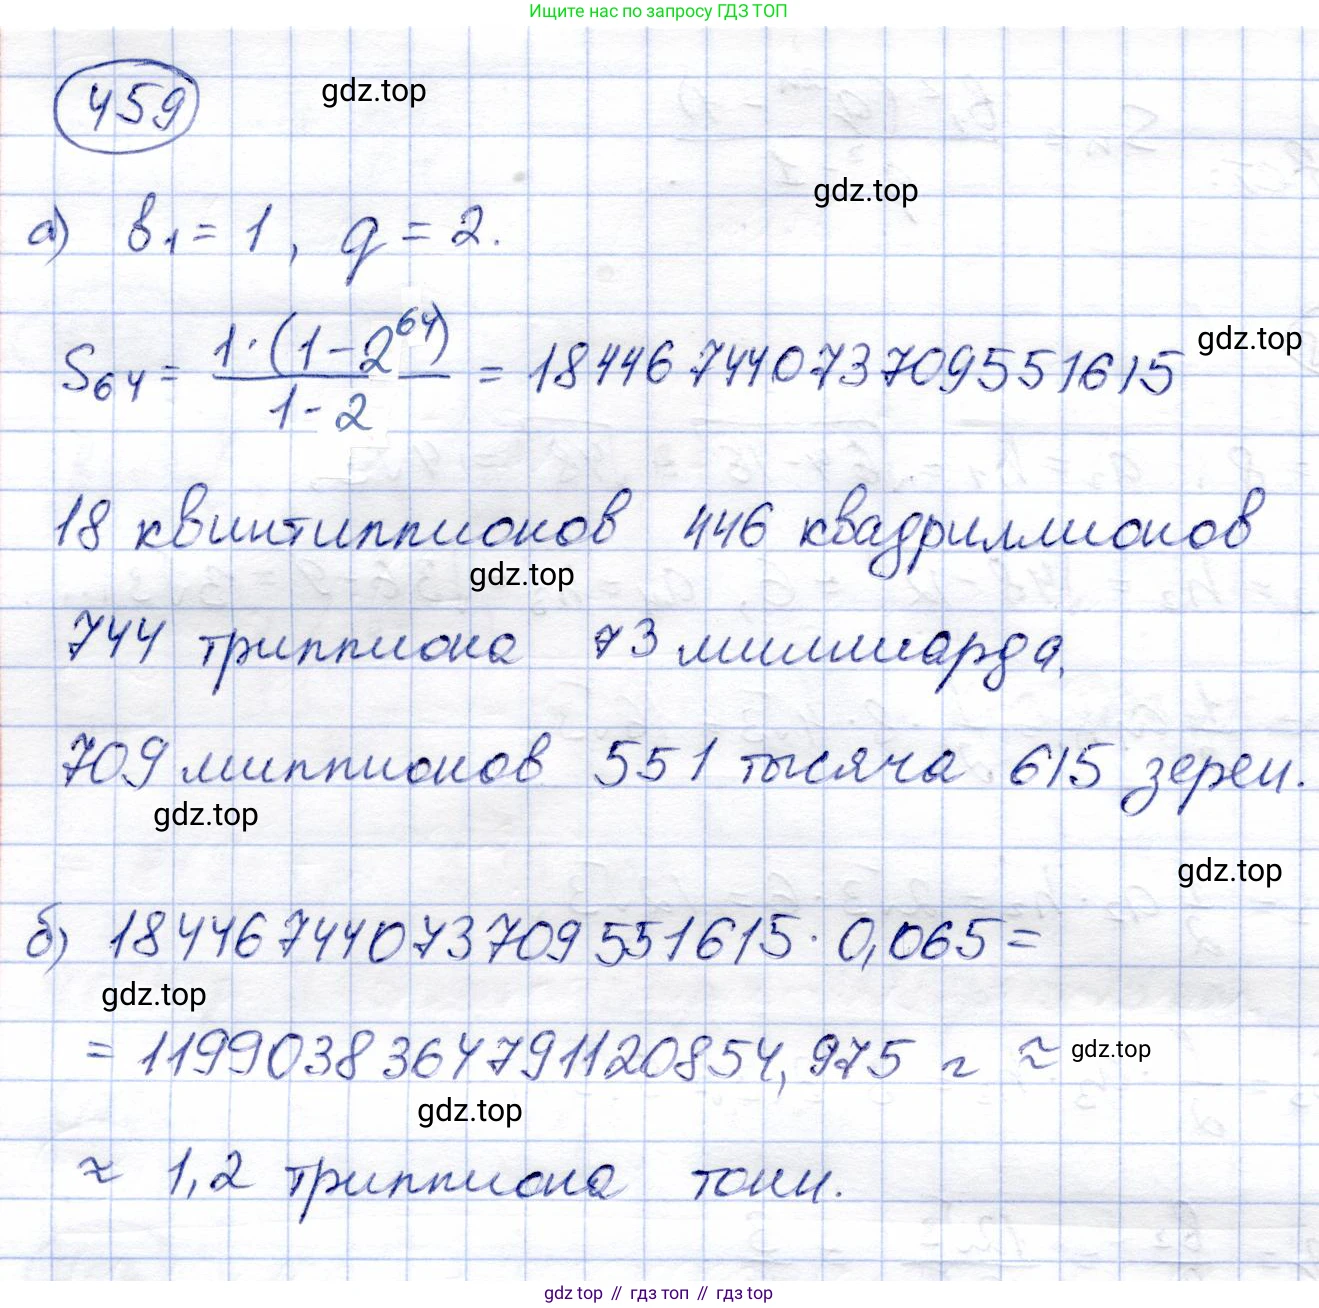 Ищите нас по запросу ГДЗ ТОП
459
gdz.top
gdz.top
а) b₁ = 1, q = 2.
S₆₄ = 1·(1-2⁶⁴) / 1-2 = 18446744073709551615
gdz.top
18 квинтиллионов 446 квадриллионов
gdz.top
744 триллиона 73 миллиарда
709 миллионов 551 тысяча 615 зерен.
gdz.top
gdz.top
б) 18446744073709551615 · 0,065 =
gdz.top
= 1199038364791120854,975 г ≈
gdz.top
gdz.top
≈ 1,2 триллиона тонн.
gdz top // гдз топ // gdz top